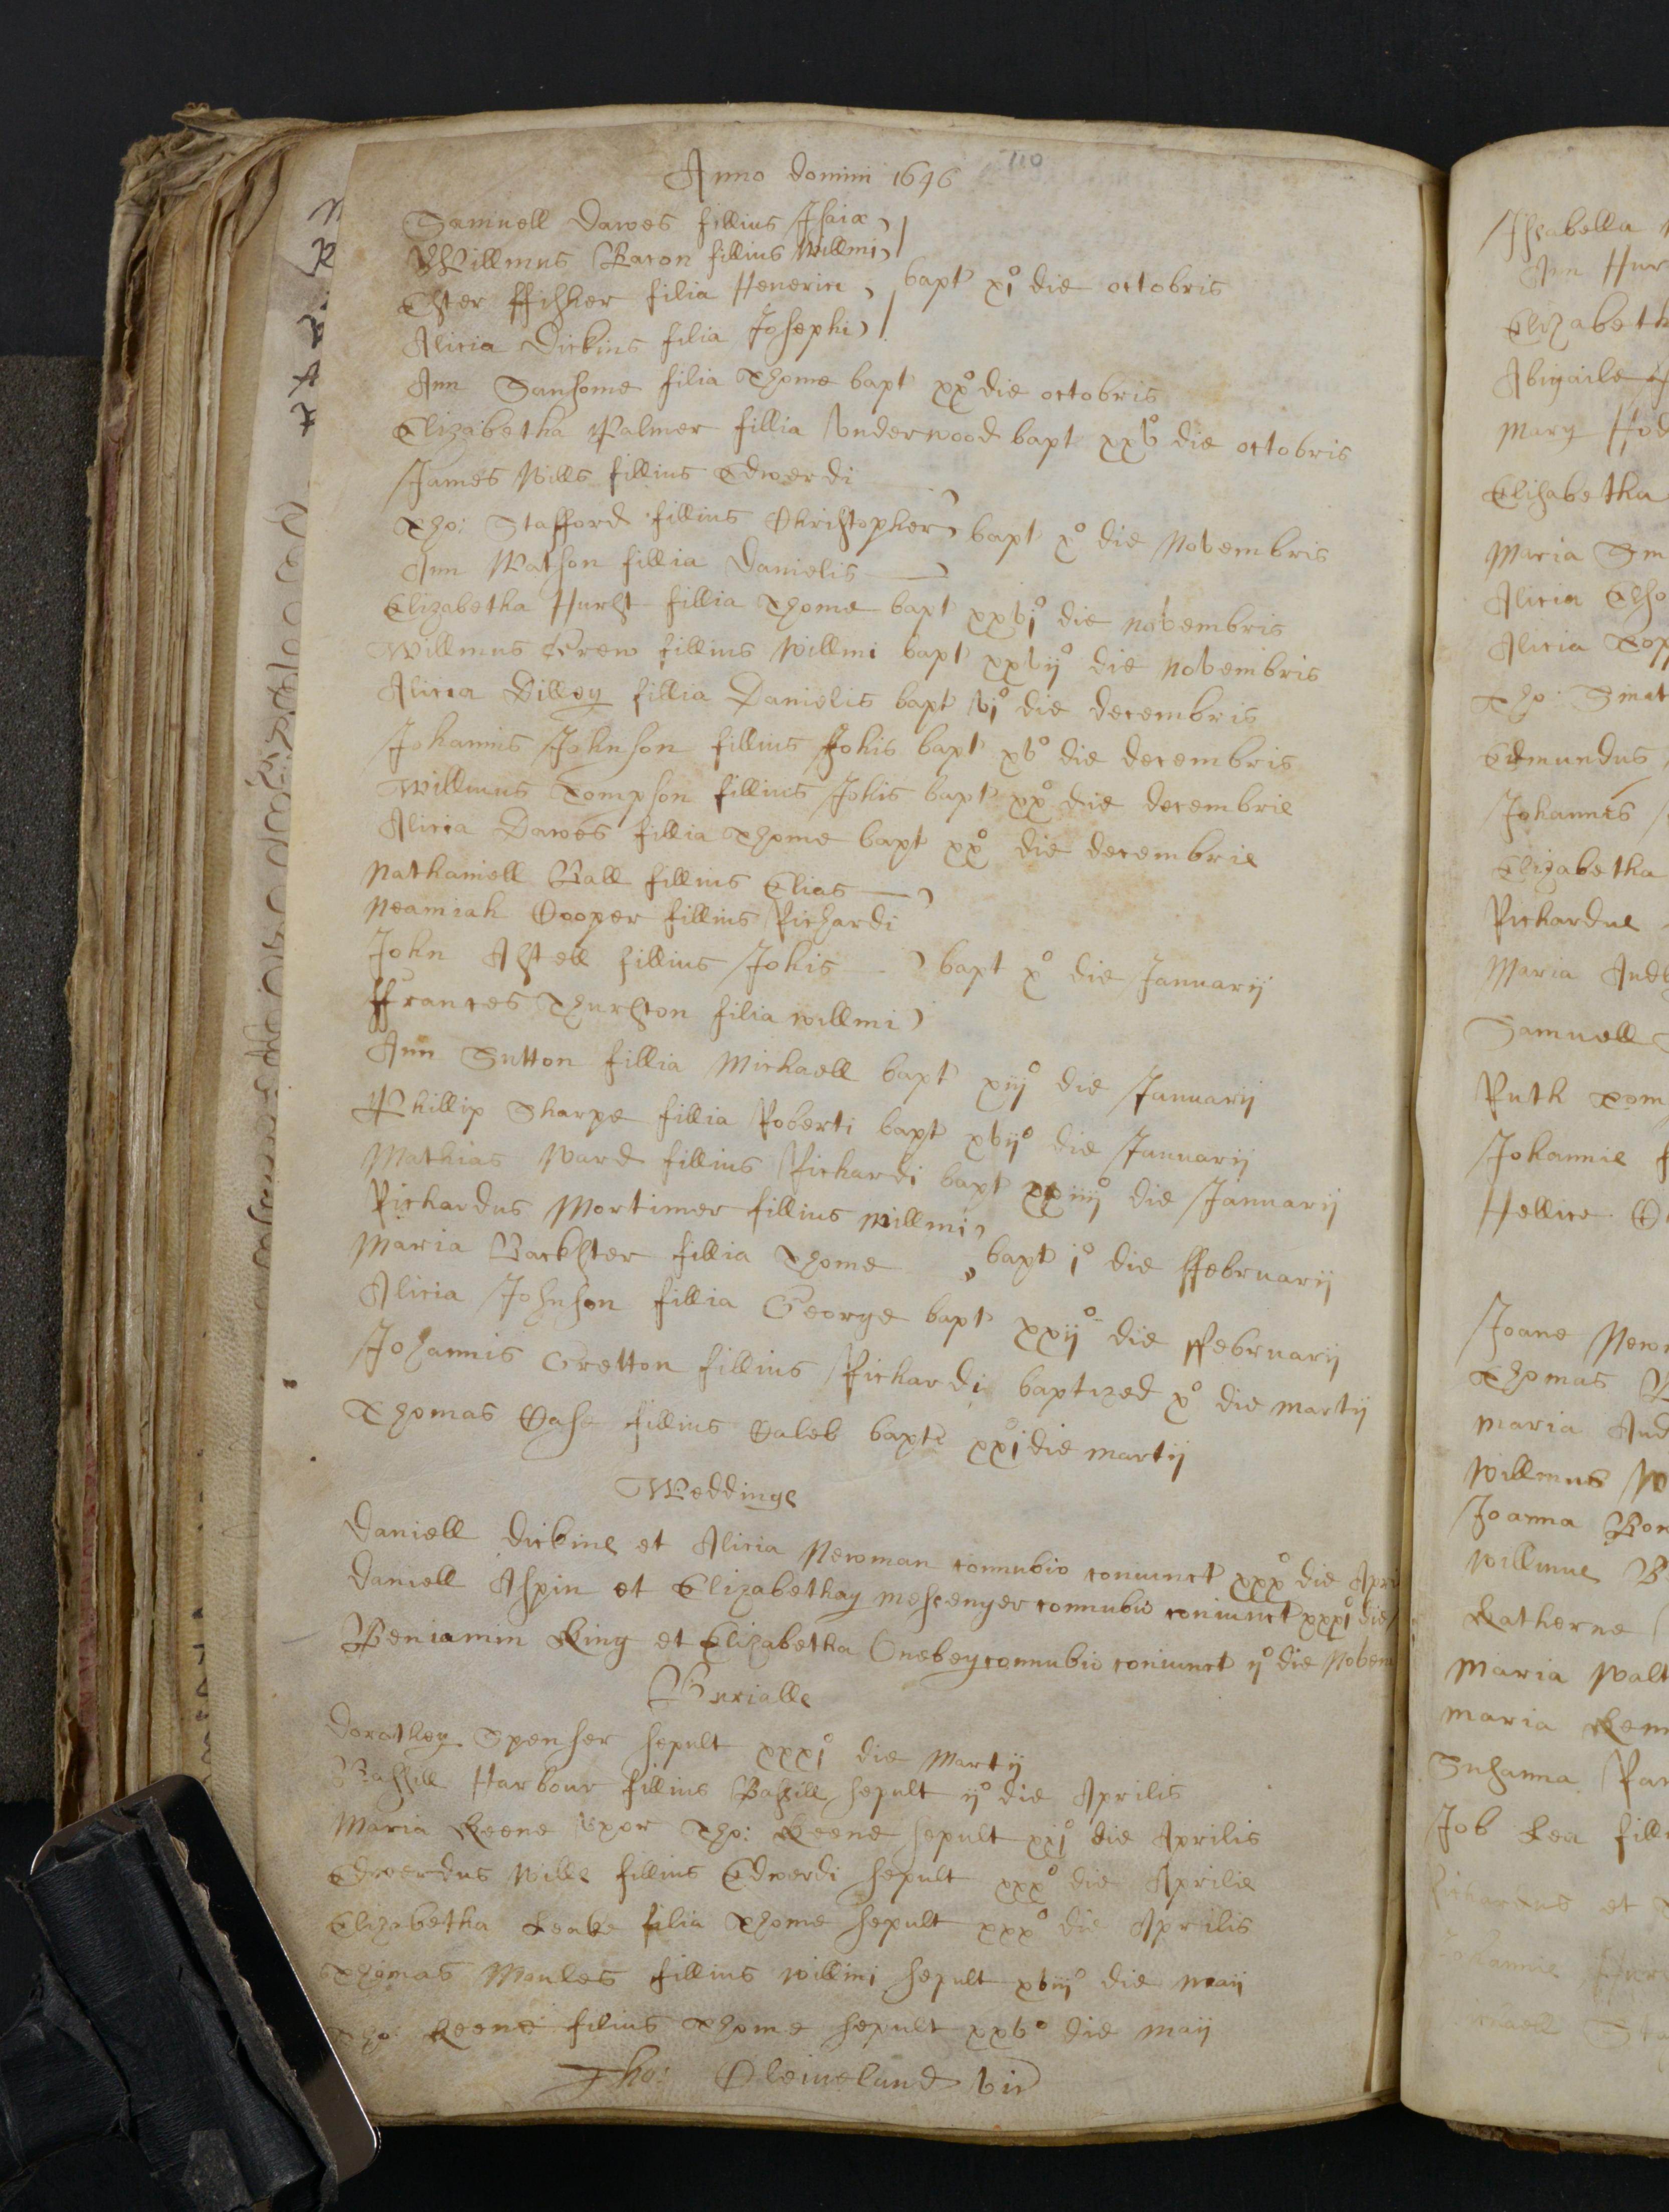 110
Anno domini 1646
Samuell Dawes fillius Isaiæ
Willmus Bacon fillius Willmi
Ester ffisher filia Henerici bapt xi° die octobris
Alicia Dickins filia Josephi
Ann Sansome filia Thome bapt xx° die octobris
Elizabetha Palmer fillia Underwood bapt xxv° die octobris
James Wills fillius Edwerdi
Tho: Stafford fillius Christopher bapt x° die Novembris
Ann Watson fillia Danielis
Elizabetha Hurst fillia Thome bapt xxvi° die novembris
Willmus Crew fillius Willmi bapt xxvij° die Novembris
Alicia Dilley fillia Danielis bapt vi° die decembris
Johannis Johnson fillius Johis bapt xv° die decembris
Willmus Tompson fillius Johis bapt xx° die decembris
Alicia Dawes fillia Thome bapt xx° die decembris
Nathaniell Ball fillius Elias
Neamiah Cooper fillius Richardi
John Astell fillius Johis bapt x° die Januarij
ffrances Thurston filia willmi
Ann Sutton fillia Michaell bapt xiij° die Januarij
Phillip Sharpe fillia Roberti bapt xvij° die Januarij
Mathias Ward fillius Richardi bapt xxiiij° die Januarij
Richardus Mortimer fillius Willmi
Maria Backster fillia Thome bapt i° die ffebruarij
Alicia Johnson fillia George bapt xxij° die ffebruarij
Johannis Gretton fillius Richardi baptized x° die martij
Thomas Case fillius Caleb bapt xxi° die martij
Weddings
Daniell Dickins et Alicia Newman connubio coniunct xxx° die Apri
Daniell Aspin et Elizabethay messenger connubio coniunct xxxi° die
Beniamin King et Elizabetha Onebey connubio coniunct ij° die Novem
Burialls
Dorathey Spenser sepult xxxi° die Martij
Bassill Harbour fillius Bassill sepult ij° die Aprilis
Maria Keene Uxor Tho: Keene sepult xij° die Aprilis
Edwerdus Wills fillius Edwerdi sepult xxx° die Aprilis
Elizabetha Leake filia Thome sepult xxx° die Aprilis
Thomas Moules fillius Willmi sepult xviij° die maij
Tho: Keene filius Thome sepult xxv° die maij
Tho: Cleiveland vic
Issabella
Ann Hur
Elizabeth
Abigaile
Mary Hod
Elisabetha
Maria Sm
Alicia
Alicia
Tho: Smit
Edmundus
Johannes
Elizabetha
Richardus
Maria And
Samuell
Ruth Tom
Johannis
Hellice
Joane New
Thomas
Maria And
Willmus
Joanna
Willmus
Katherne
Maria Walt
Maria
Susanna
Job Lea filli
Richardus et
Johannis